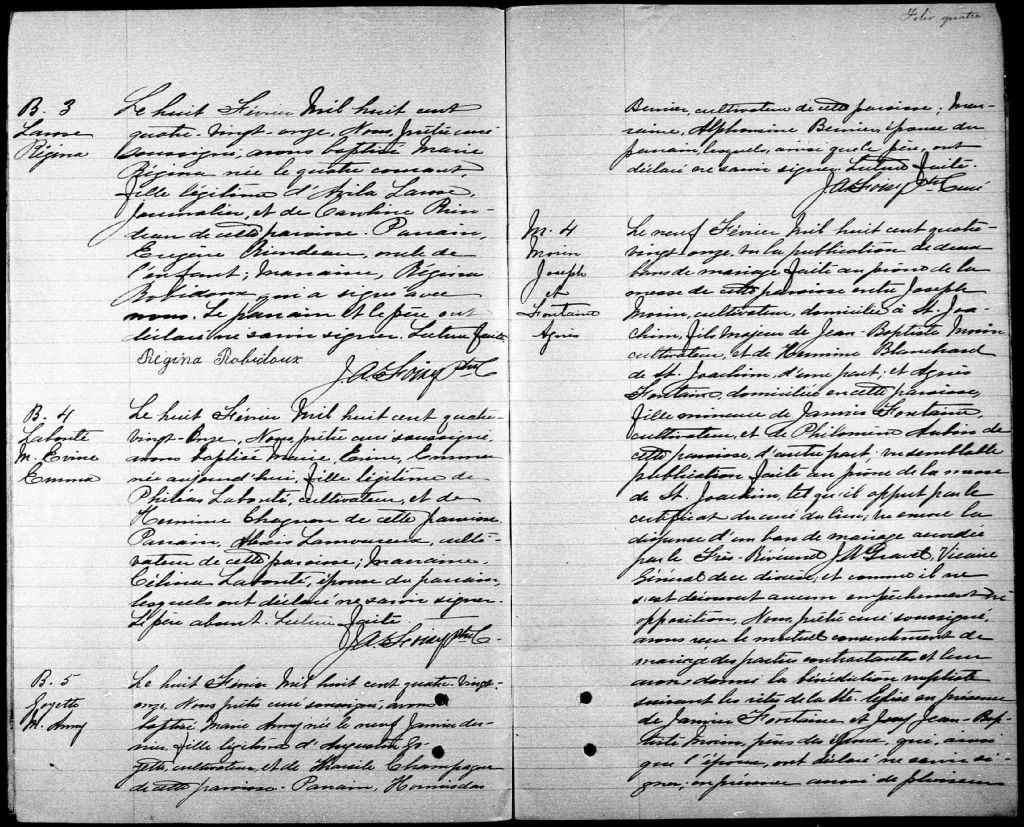 B. 3
Lasne
Régina
Le huit Février Mil huit cent
quatre-vingt-onze, Nous, prêtre curé
soussigné, avons baptisé Marie
Régina née le quatre courant,
fille légitime d'Azila
Journalier, et de Caroline Rin-
deau de cette paroisse. Parrain,
Eugène Rindeau, oncle de
l'enfant; marraine, Régina
Robidoux qui a signé avec
nous. Le parrain et le père ont
déclaré ne savoir signer. Lecture faite
Régina Robidoux
B. 4
Labonté
M. Evine
Emma
Le huit Février Mil huit cent quatre-
vingt-onze, Nous, prêtre curé soussigné,
avons baptisé Marie, Evine, Emma
née aujourd'hui, fille légitime de
Philéas Labonté, cultivateur, et de
Hermine Chagnon de cette paroisse.
Parrain, Alexis Lamoureux, culti-
vateur de cette paroisse; marraine,
Célina Labonté, épouse du parrain,
lesquels ont déclaré ne savoir signer.
Le père absent. Lecture faite
B. 5
Goyette
M. Anny
Le huit Février Mil huit cent quatre-vingt-
onze, Nous prêtre curé soussigné, avons
baptisé Marie Anny née le neuf Janvier der-
nier, fille légitime d'Augustin Go-
yette, cultivateur, et de Champagne
de cette paroisse. Parrain, Hormisdas
Folio quatre
Bernier, cultivateur de cette paroisse; mar-
raine, Alphonsine Bernier, épouse du
parrain, lesquels, ainsi que le père, ont
déclaré ne savoir signer. Lecture faite.
M. 4
Morin
Joseph
et
Fontaine
Agnès
Le neuf Février Mil huit cent quatre-
vingt onze, vu la publication de deux
bans de mariage faite au prône de la
messe de cette paroisse entre Joseph
Morin, cultivateur, domicilié à St. Joa-
chim, fils majeur de Jean-Baptiste Morin
cultivateur, et de Hermine Blanchard
de St. Joachim, d'une part; et Agnès
Fontaine, domiciliée en cette paroisse,
fille mineure de Janvier Fontaine,
cultivateur, et de Philomène Aubin de
cette paroisse, d'autre part; vu semblable
publication faite au prône de la messe
de St. Joachim, tel qu'il appert par le
certificat du curé du lieu; vu encore la
dispense d'un ban de mariage accordée
par le Très-Révérend J A Gravel, Vicaire
Général de ce diocèse; et comme il ne
s'est découvert aucun empêchement ni
opposition, Nous, prêtre curé soussigné,
avons reçu le mutuel consentement de
mariage des parties contractantes et leur
avons donné la bénédiction nuptiale
suivant les rites de la Ste. Eglise en présence
de Janvier Fontaine, et Jean-Bap-
tiste Morin, pères des époux, qui, ainsi
que l'épouse, ont déclaré ne savoir si-
gner, en présence aussi de plusieurs